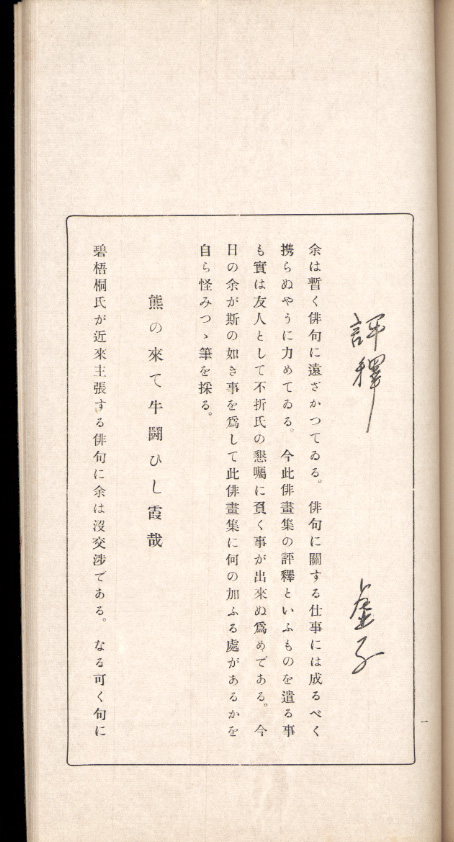 評釋
虛子
余は暫く俳句に遠ざかつてゐる。俳句に關する仕事には成るべく
携らぬやうに力めてゐる。今此俳畫集の評釋といふものを遣る事
も實は友人として不折氏の懇囑に負く事が出來ぬ爲めである。今
日の余が斯の如き事を爲して此俳畫集に何の加ふる處があるかを
自ら怪みつゝ筆を採る。
熊の來て牛鬪ひし霞哉
碧梧桐氏が近來主張する俳句に余は沒交涉である。なる可く句に
一